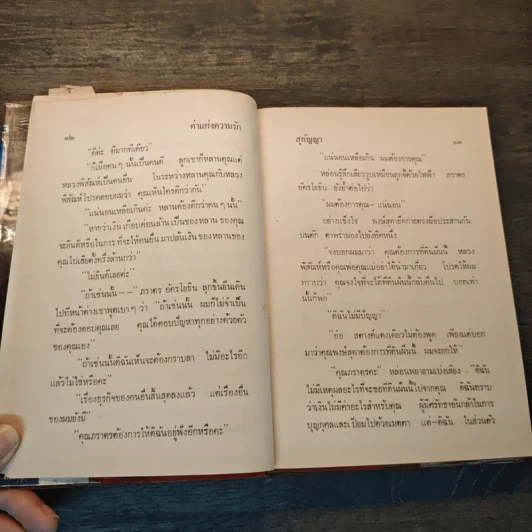 ๑๒ ค่าแห่งความรัก
"ดีค่ะ ดีมากทีเดียว"
"ก็เมื่อคนๆ นั้นเป็นคนดี ลูกเขาก็หลานคุณแต่
หลวงพิสัณห์เป็นคนอื่น ในระหว่างหลานคุณกับหลวง
พิสัณห์ โปรดตอบผมว่า คุณเห็นใครดีกว่ากัน"
"แน่นอนเหลือเกินค่ะ หลานต้องดีกว่าคนๆ นั้น"
"หากว่าเงินเกือบค่อนล้านเป็นของหลานของคุณ
จะยินดีหรือในการที่จะให้คนอื่นมาปล้นเงินของหลานของ
คุณไปเสียตั้งครึ่งล้านกว่า"
"ไม่ยินดีเลยค่ะ"
"ถ้าเช่นนั้น——" ภราดร อัครโยธิน ลุกขึ้นยืนเดิน
ไปที่หน้าต่างเขาพูดเบาๆ ว่า "ถ้าเช่นนั้น ผมก็ไม่จำเป็น
ที่จะต้องตอบคุณเลย คุณได้ตอบปัญหาทุกอย่างด้วยตัว
ของคุณเอง"
"ถ้าเช่นนั้นดิฉันเห็นจะต้องกราบลา ไม่มีอะไรอีก
แล้วไม่ใช่หรือคะ"
"เรื่องธุรกิจของคนอื่นสิ้นสุดลงแล้ว แต่เรื่องอื่น
ของผมยังมี"
"คุณภราดรต้องการให้ดิฉันอยู่ฟังอีกหรือคะ"
สุกัญญา ๑๓
"แน่นอนเหลือเกิน ผมต้องการคุณ"
หล่อนรู้สึกเสียววูบเหมือนถูกช็อตด้วยไฟฟ้า ภราดร
อัครโยธิน ยังย้ำต่อไปว่า
"ผมต้องการคุณ—แน่นอน"
อย่างแข็งใจ พงษ์สุดายึดกายตรงมือประสานกัน
บนตัก ตาพร่ามองไปยังทิศหนึ่ง
"จงบอกผมมาว่า คุณต้องการที่ดินผืนนั้น หลวง
พิสัณห์หรือคุณพ่อคุณแม่อยากได้นักมาเกี่ยว โปรดให้ผม
ทราบว่า คุณจงใจที่จะได้ที่ดินผืนนั้นกลับคืนไป บอกเท่า
นั้นก็พอ
"ดิฉันไม่มีปัญญา"
"อ้อ สตางค์แดงเดียวไม่ต้องพูด เพียงแต่บอก
มาว่าคุณพงษ์สุดาต้องการที่ดินผืนนั้น ผมจะยกให้"
"คุณภราดรคะ" หล่อนพยายามเบ่งเสียง "ดิฉัน
ไม่มีเหตุผลอะไรที่จะขอที่ดินผืนนั้นไปจากคุณ ดิฉันทราบ
ว่าเงินไม่มีค่าอะไรสำหรับคุณ ผู้มีศรัทธาอันกล้าในการ
บุญกุศลและเปี่ยมไปด้วยเมตตา แต่—ดิฉัน ในส่วนตัว